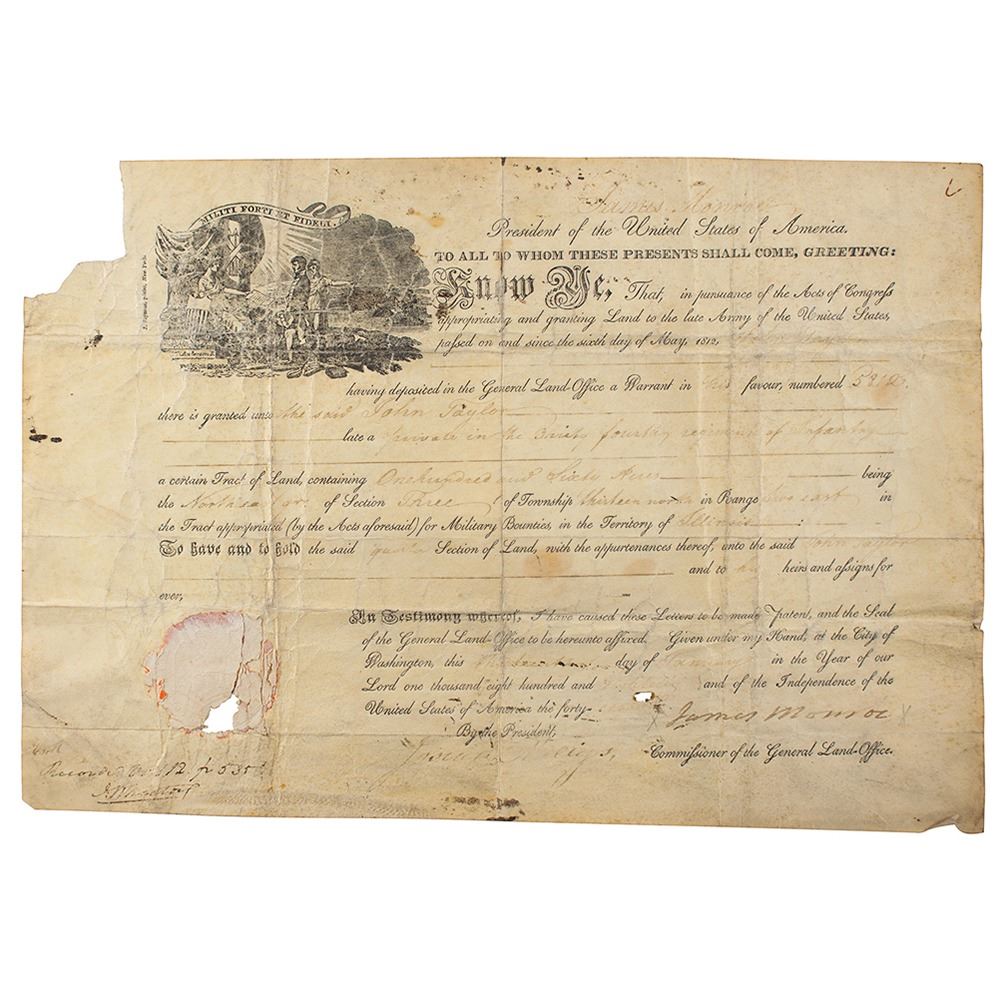 MILITI FORTI ET FIDELI.
James Monroe
President of the United States of America.
TO ALL TO WHOM THESE PRESENTS SHALL COME, GREETING:
Know Ye, That, in pursuance of the Acts of Congress
appropriating and granting Land to the late Army of the United States,
passed on and since the sixth day of May, 1812,
having deposited in the General Land-Office a Warrant in his favour, numbered
there is granted unto the said John Taylor
late a private in the Thirty fourth regiment of Infantry
a certain Tract of Land, containing One hundred and Sixty Acres being
the of Section Three of Township thirteen north in Range east in
the Tract appropriated (by the Acts aforesaid) for Military Bounties, in the Territory of Illinois:
To have and to hold the said quarter Section of Land, with the appurtenances thereof, unto the said John Taylor
and to his heirs and assigns for
ever,
In Testimony whereof, I have caused these Letters to be made Patent, and the Seal
of the General Land-Office to be hereunto affixed. Given under my Hand, at the City of
Washington, this day of January in the Year of our
Lord one thousand eight hundred and and of the Independence of the
United States of America the forty-
James Monroe
By the President,
Commissioner of the General Land-Office.
Recorded